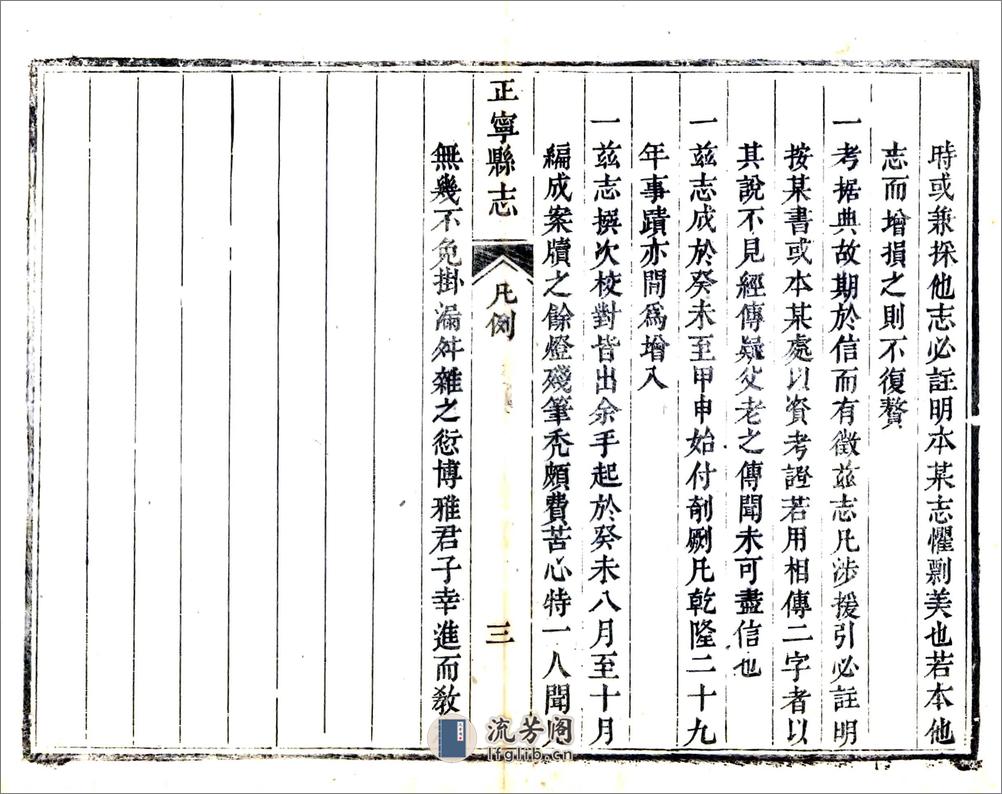 時或兼採他志必註明本某志懼剽美也若本他
志而增損之則不復贅
一考据典故期於信而有徵茲志凡涉援引必註明
按某書或本某處以資考證若用相傳二字者以
其說不見經傳疑父老之傳聞未可盡信也
一茲志成於癸未至甲申始付剞劂凡乾隆二十九
年事蹟亦間爲增入
一茲志撰次校對皆出余手起於癸未八月至十月
編成案牘之餘燈殘筆禿頗費苦心特一人聞
正寧縣志 凡例 三
無幾不免掛漏舛雜之愆博雅君子幸進而敎
流芳阁
lfglib.cn